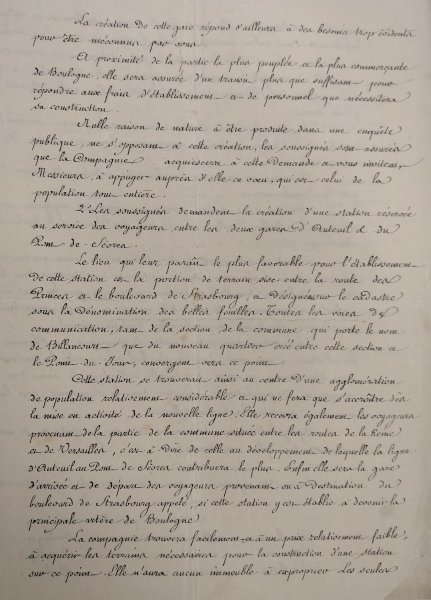 La création de cette gare répond d'ailleurs à des besoins trop évidents
pour être méconnus par vous.
Et proximité de la partie la plus peuplée et la plus commerçante
de Boulogne, elle sera assurée d'un transit plus que suffisant pour
répondre aux frais d'établissement et de personnel que nécessitera
sa construction.
Nulle raison de nature à être produite dans une enquête
publique, ne s'opposant à cette création, les soussignés sont assurés
que la Compagnie acquiescera à cette Demande et vous invitent,
Messieurs, à appuyer auprès d'elle ce vœu, qui est celui de la
population tout entière.
2° Les soussignés demandent la création d'une station réservée
au service des voyageurs entre les deux gares d'Auteuil et du
Pont de Sèvres.
Le lieu qui leur paraît le plus favorable pour l'établissement
de cette station est la portion de terrain sise entre la route des
Princes et le boulevard de Strasbourg, et désignée sur le cadastre
sous la Dénomination des belles feuilles. Toutes les voies de
communication, tant de la section de la commune qui porte le nom
de Billancourt que du nouveau quartier créé entre cette section et
le Point du Jour, convergent vers ce point.
Cette station se trouverait ainsi au centre d'une agglomération
de population relativement considérable et qui ne fera que s'accroître dès
la mise en activité de la nouvelle ligne. Elle recevra également les voyageurs
provenant de la partie de la commune située entre les routes de la Reine
et de Versailles, c'est à dire de celle au développement de laquelle la ligne
d'Auteuil au Pont de Sèvres contribuera le plus. Enfin elle sera la gare
d'arrivée et de départ des voyageurs provenant ou à destination du
boulevard de Strasbourg appelé, si cette station y est établie à devenir la
principale artère de Boulogne
La compagnie trouvera facilement et à un prix relativement faible,
à acquérir les terrains nécessaires pour la construction d'une station
sur ce point. Elle n'aura aucun immeuble à exproprier Les seules